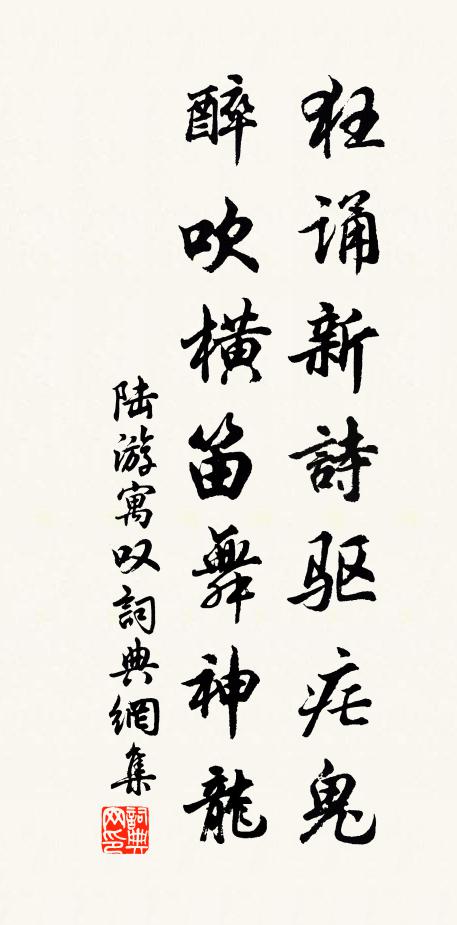 狂诵新詩驱疟鬼
醉吹横笛舞神龍
陆游寓叹詞典網集
詞典网印